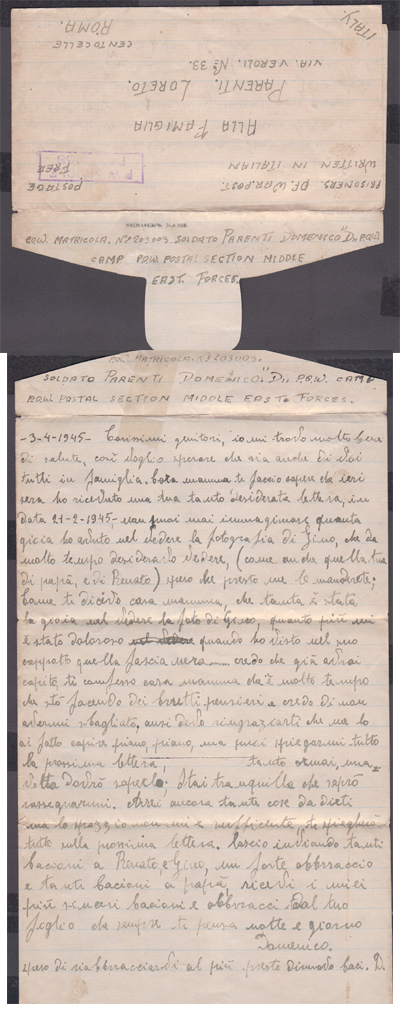 ITALY.
ROMA.
CENTOCELLE
VIA. VEROLI. Nº 33.
PARENTI. LORETO.
ALLA FAMIGLIA
WRITTEN IN ITALIAN
PRISONERS. OF. WAR. POST.
POSTAGE
FREE
P.W.
SENDER'S NAME
P.O.W. MATRICOLA. Nº 203003 SOLDATO PARENTI DOMENICO "D" P.O.W.
CAMP P.O.W. POSTAL SECTION MIDDLE
EAST. FORCES.
P.O.W. MATRICOLA. Nº 203003.
SOLDATO PARENTI DOMENICO. "D" P.O.W. CAMP
P.O.W. POSTAL SECTION MIDDLE EAST. FORCES.
-3-4-1945- Carissimi genitori, io mi trovo molto bene
di salute, così voglio sperare che sia anche di voi
tutti in famiglia. Cara mamma ti faccio sapere che ieri
sera ho ricevuto una tua tanto desiderata lettera, in
data 21-2-1945- non puoi mai immaginare quanta
gioia ho avuto nel vedere la fotografia di Gino, che da
molto tempo desideravo vedere, (come anche quella tua
di papà, e di Renato) spero che presto me le manderete;
Come ti dicevo cara mamma, che tanta è stata
la gioia nel vedere la foto di Gino, quanto più mi
è stato doloroso quando ho visto nel suo
cappotto quella fascia nera credo che già avrai
capito, ti confesso cara mamma che è molto tempo
che sto facendo dei brutti pensieri e credo di non
essermi sbagliato, anzi devo ringraziarti che me lo
ai fatto capire piano, piano, ma puoi spiegarmi tutto
la prossima lettera, tanto ormai, una
volta dovrò saperlo. Stai tranquilla che saprò
rassegnarmi. Avrei ancora tante cose da dirti
ma lo spazio non mi è sufficiente, ti spiegherò
tutto sulla prossima lettera. Lascio inviando tanti
bacioni a Renato, e Gino, un forte abbraccio
e tanti bacioni a papà, ricevi i miei
più sinceri bacioni e abbracci dal tuo
figlio che sempre ti pensa notte e giorno
Domenico.
spero di riabbracciarvi al più presto baci. D.